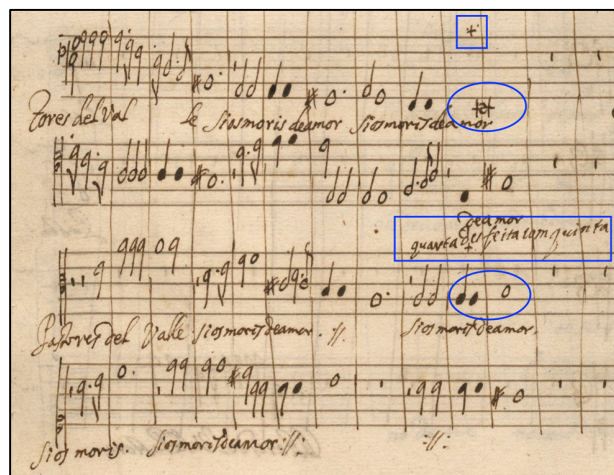 tores del Val le sios moris de amor sios moris de amor
de amor
quarta desfeita com quinta
Pastores del Valle sios moris de amor . //. sios moris de amor.
sios moris. sios moris de amor :// ://: